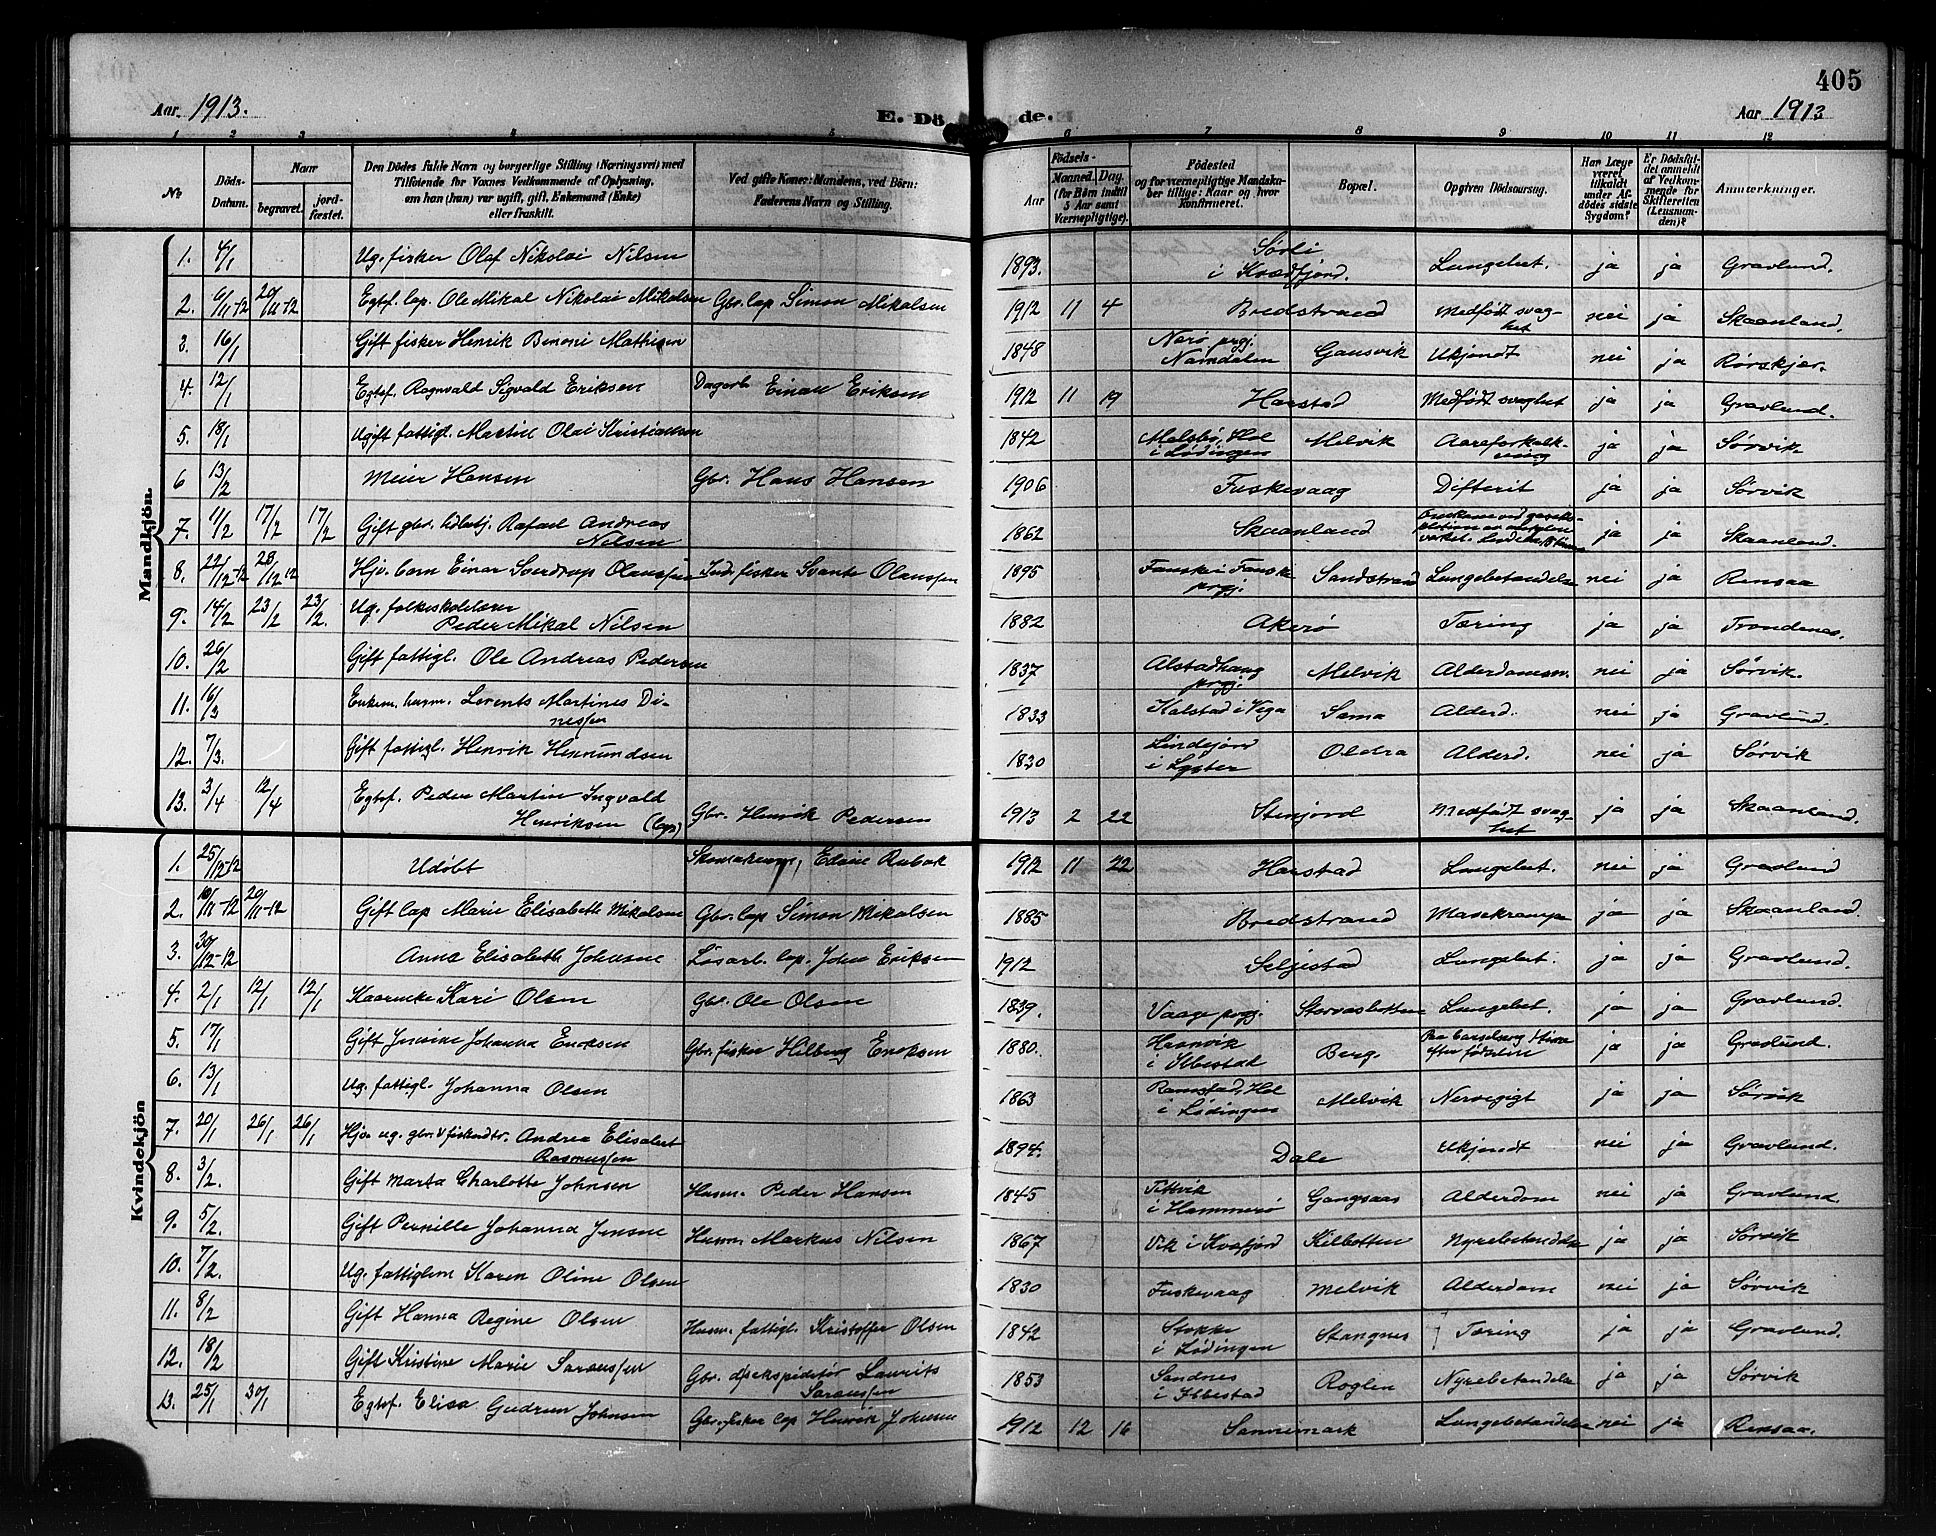 405
Aar 1913.
E. Döde.
Aar 1913
1 2 3 4 5 6 7 8 9 10 11 12
No
Döds-Datum.
Naar
begravet.
jord-fæstet.
Den Dödes fulde Navn og borgerlige Stilling (Næringsvei) med
Tilföiende for Voxnes Vedkommende af Oplysning,
om han (hun) var ugift, gift, Enkemand (Enke)
eller fraskilt.
Ved gifte Koner: Mandens, ved Börn:
Faderens Navn og Stilling.
Födsels-
Aar
Maaned. Dag.
(for Börn indtil
5 Aar samt
Værnepligtige).
Födested
og for værnepligtige Mandska-
ber tillige: Naar og hvor
Konfirmeret.
Bopæl.
Opgiven Dödsaarsag.
Har Læge
været
tilkaldt
under Af-
dödes sidste
Sygdom?
Er Dödsfal-
det anmeldt
af Vedkom-
mende for
Skifteretten
(Lensman-
den)?
Anmærkninger.
Mandkjön.
1. 4/1 Ug. fisker Olaf Nikolai Nilsen 1893. Sørli i Kvædfjord. Lungebet. ja ja Gravlund.
2. 6/11-12 20/11-12 Egtef. lap. Ole Mikal Nikolai Mikalsen Gbr. lap Simon Mikalsen 1912 11 4 Bredstrand Medfødt svag-het nei ja Skaanland.
3. 16/1 Gift fisker Henrik Benoni Mathisen 1848 Nærø prgj. Namdalen Gausvik Ukjendt nei ja Rørskjær.
4. 12/1 Egtef. Ragnvald Sigvald Eriksen Dagarb. Einar Eriksen 1912 11 19 Harstad Medfødt svaghet ja ja Gravlund.
5. 18/1 Ugift fattigl. Martin Olai Kristiansen 1842 Malsbø, Hol i Lødingen Melvik Aareforkalk-ning ja ja Sørvik.
6 13/2 Meier Hansen Gbr. Hans Hansen 1906 Fuskevaag Difterit ja ja Sørvik
7. 11/2 17/2 17/2 Gift gbr. Rafael Andreas Nilsen 1862 Skaanland ja ja Skaanland.
8. 22/12-12 28/12 12 Hjv. barn Einar Sverdrup Olaussen Ind. fisker Svante Olaussen 1895 Fauske i Fauske prgj. Sandstrand Lungebetændelse nei ja Rensaa
9. 14/2 23/2 23/2. Ug. folkeskolelærer Peder Mikal Nilsen 1882 Akerø Tæring ja ja Trondenes.
10. 26/2 Gift fattigl. Ole Andreas Pedersen 1837 Alstadhaug prgj. Melvik Alderdomssv. nei ja Sørvik.
11. 16/3 Enkem. husm. Lorents Martines Di-nessen 1833 Kalstad i Vega Sama Alderd. nei ja Gravlund.
12. 7/3. Gift fattigl. Henrik Henriksen 1830 i Lyster Oldra Alderd. nei ja Sørvik
13. 3/4 12/4 Egtef. Peder Martin Ingvald Henriksen (lap) Gbr. Henrik Pedersen 1913 2 22 Stinjord Medfødt svag-het ja ja Skaanland.
Kvindekjön
1. 25/12-12 Udøbt Skomakersv. Edvin Rubak 1912 11 22 Harstad Lungebet. nei ja Gravlund
2. 10/11-12 20/11-12 Gift lap Marie Elisabeth Mikalsen Gbr. lap Simon Mikalsen 1885 Bredstrand Mavekrampe ja ja Skaanland.
3. 30/12-12 Anne Elisabeth Johnsen Løsarb. lap. John Eriksen 1912 Seljestad Lungebet. ja ja Gravlund.
4. 2/1 12/1 12/1 Kaarenke Kari Olsen Gbr. Ole Olsen 1839. Vaage prgj. Storvasbotten Lungebet. ja ja Gravlund.
5. 17/1 Gift Jensine Johanna Eriksen Gbr. fisker Hilberg Eriksen 1880. i Ibbestad Berg. Paa barselseng 1 time efter fødselen ja ja Gravlund.
6. 13/1 Ug. fattigl. Johanna Olsen 1863 Ramstad, Hol i Lødingen Melvik Nervegigt ja ja Sørvik
7. 20/1 26/1 26/1 Hjv. ug. gbr. & fiskerdtr. Andrea Elisabet Rasmussen 1894. Dale Ukjendt nei ja Gravlund.
8. 3/2. Gift Marta Charlotte Johnsen Husm. Peder Hansen 1845 i Hammerø Gangsaas Alderdom nei ja Gravlund
9. 5/2. Gift Pernille Johanna Jensen Husm. Markus Nilsen 1867 Vik i Kvæfjord Kilbotten Nyrebetændelse ja ja Sørvik
10. 7/2. Ug. fattiglem Karen Oline Olsen 1830 Fuskevaag Melvik Alderdom nei ja Sørvik
11. 8/2 Gift Hanna Regine Olsen Husm. fattigl. Kristoffer Olsen 1842 Stokke i Lødingen Stangnes Tæring ja ja Gravlund.
12. 18/2 Gift Kristine Marie Saraussen Gbr. dpekspeditør Laurits Saraussen 1853 Sandnes i Ibbestad Roglen Nyrebetændelse ja ja Sørvik
13. 25/1 30/1 Egtef. Elisa Gudrun Johnsen Gbr. fisker lap Henrik Johnsen 1912 12 16 Sannimark Lungebetændelse nei ja Rensaa.